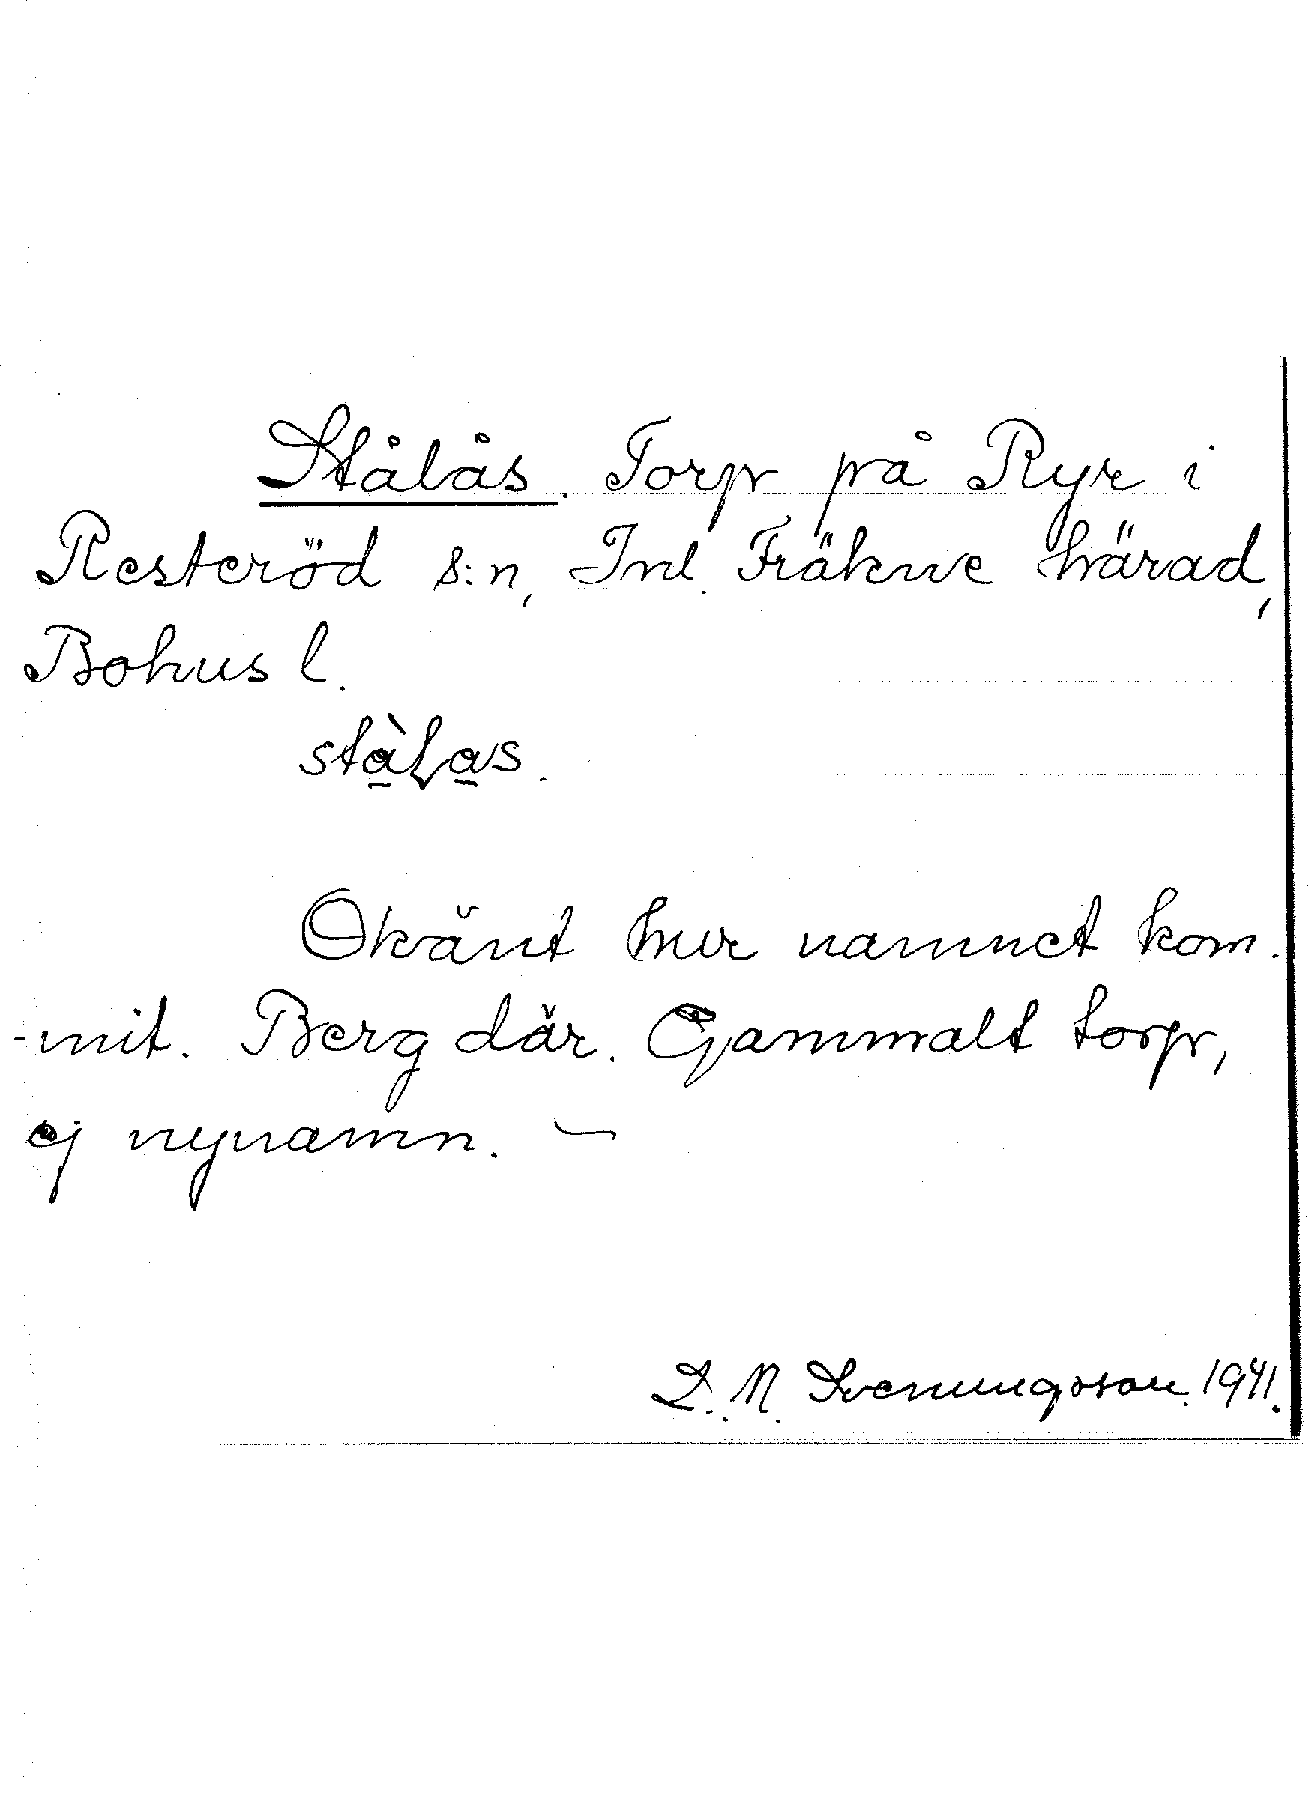 Stålås. Torp på Ryr i
Resteröd s:n, Inl. Fräkne härad,
Bohus l.
stàlas.
Okänt hur namnet kom-
-mit. Berg där. Gammalt torp,
ej nynamn. —
S. N. Svenungsson. 1941.